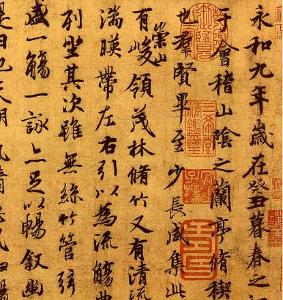 永和九年歲在癸丑暮春之
于會稽山陰之蘭亭脩稧
也羣賢畢至少長咸集此
有崇山峻領茂林脩竹又有清流
湍暎帶左右引以為流觴曲
列坐其次雖無絲竹管弦
盛一觴一詠亦足以暢叙幽
是日也天朗氣清